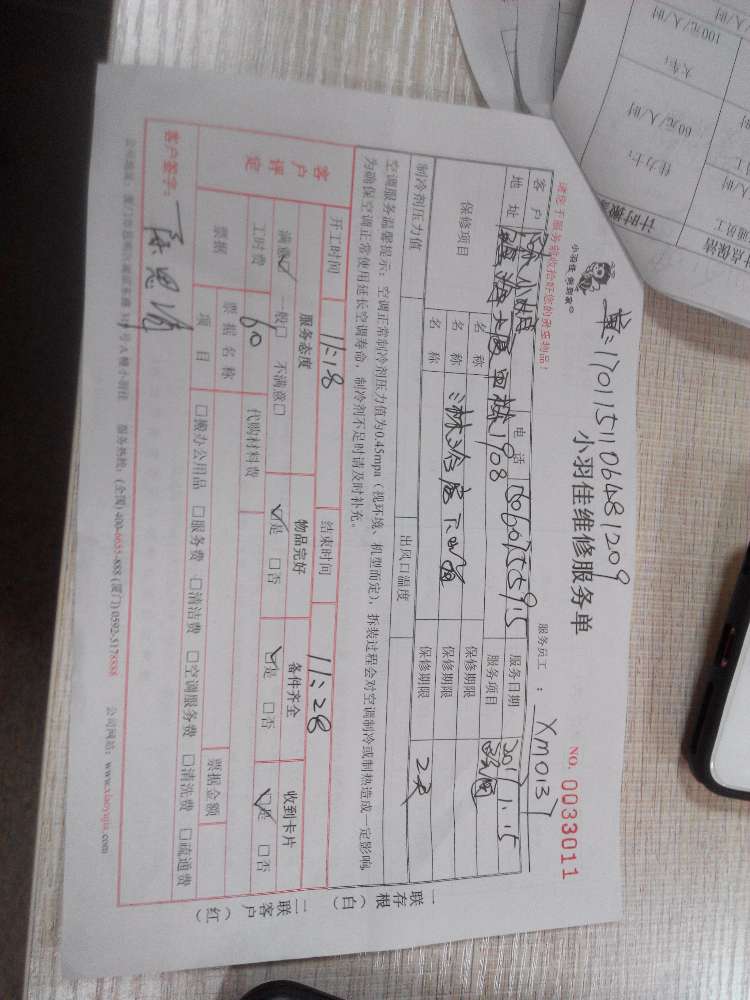 单:1701151106481209
小羽佳 倍到家
小羽佳维修服务单
NO. 0033011
请您于服务前收拾好您的贵重物品!
服务员工: XM0137
客户 小姐 电话 服务日期 2017.1.15
地址 1908 服务项目
保修项目 名称 保修期限
名称 保修期限
名称 保修期限 2天
制冷剂压力值 出风口温度
空调服务温馨提示:空调正常制冷剂压力值为0.45mpa(视环境、机型而定),拆装过程会对空调制冷或制热造成一定影响,
为确保空调正常使用延长空调寿命,制冷剂不足时请及时补充。
开工时间 11:18 结束时间 11:28
客户评定 服务态度 物品完好 备件齐全 收到卡片
满意☑ 一般□ 不满意□ ☑是 □否 ☑是 □否 ☑是 □否
工时费 60 代购材料费
票据 票据名称 票据金额
项目 □搬办公用品 □服务费 □清洁费 □空调服务费 □清洗费 □疏通费
客户签字:
服务热线:(全国)400-6635-888 (厦门)0592-5178888 公司网站:www.xiaoyujia.com
一联存根(白)
二联客户(红)
计时搬
大车: 100元/人/时
60元/人/时